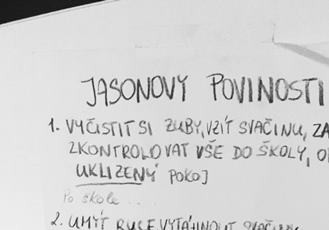 JASONOVY POVINOSTI
1. VYČISTIT SI ZUBY, VZÍT SVAČINU, ZA
ZKONTROLOVAT VŠE DO ŠKOLY, O
UKLIZENÝ POKOJ
Po škole...
2. UMÝT RUCE VYTÁHNOUT SVAČINU